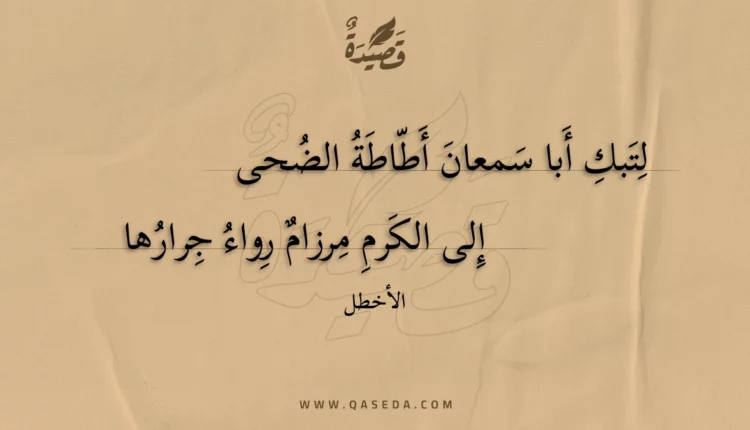 قَصِيدَةٌ
لِتَبكِ أَبا سَمعانَ أَطّاطَةُ الضُحى
إِلى الكَرمِ مِرزامٌ رِواءُ جِرارُها
الأخطل
WWW.QASEDA.COM